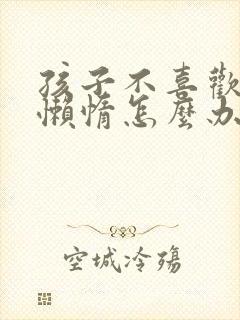 孩子不喜歡
懶惰怎麼办
空城冷殤